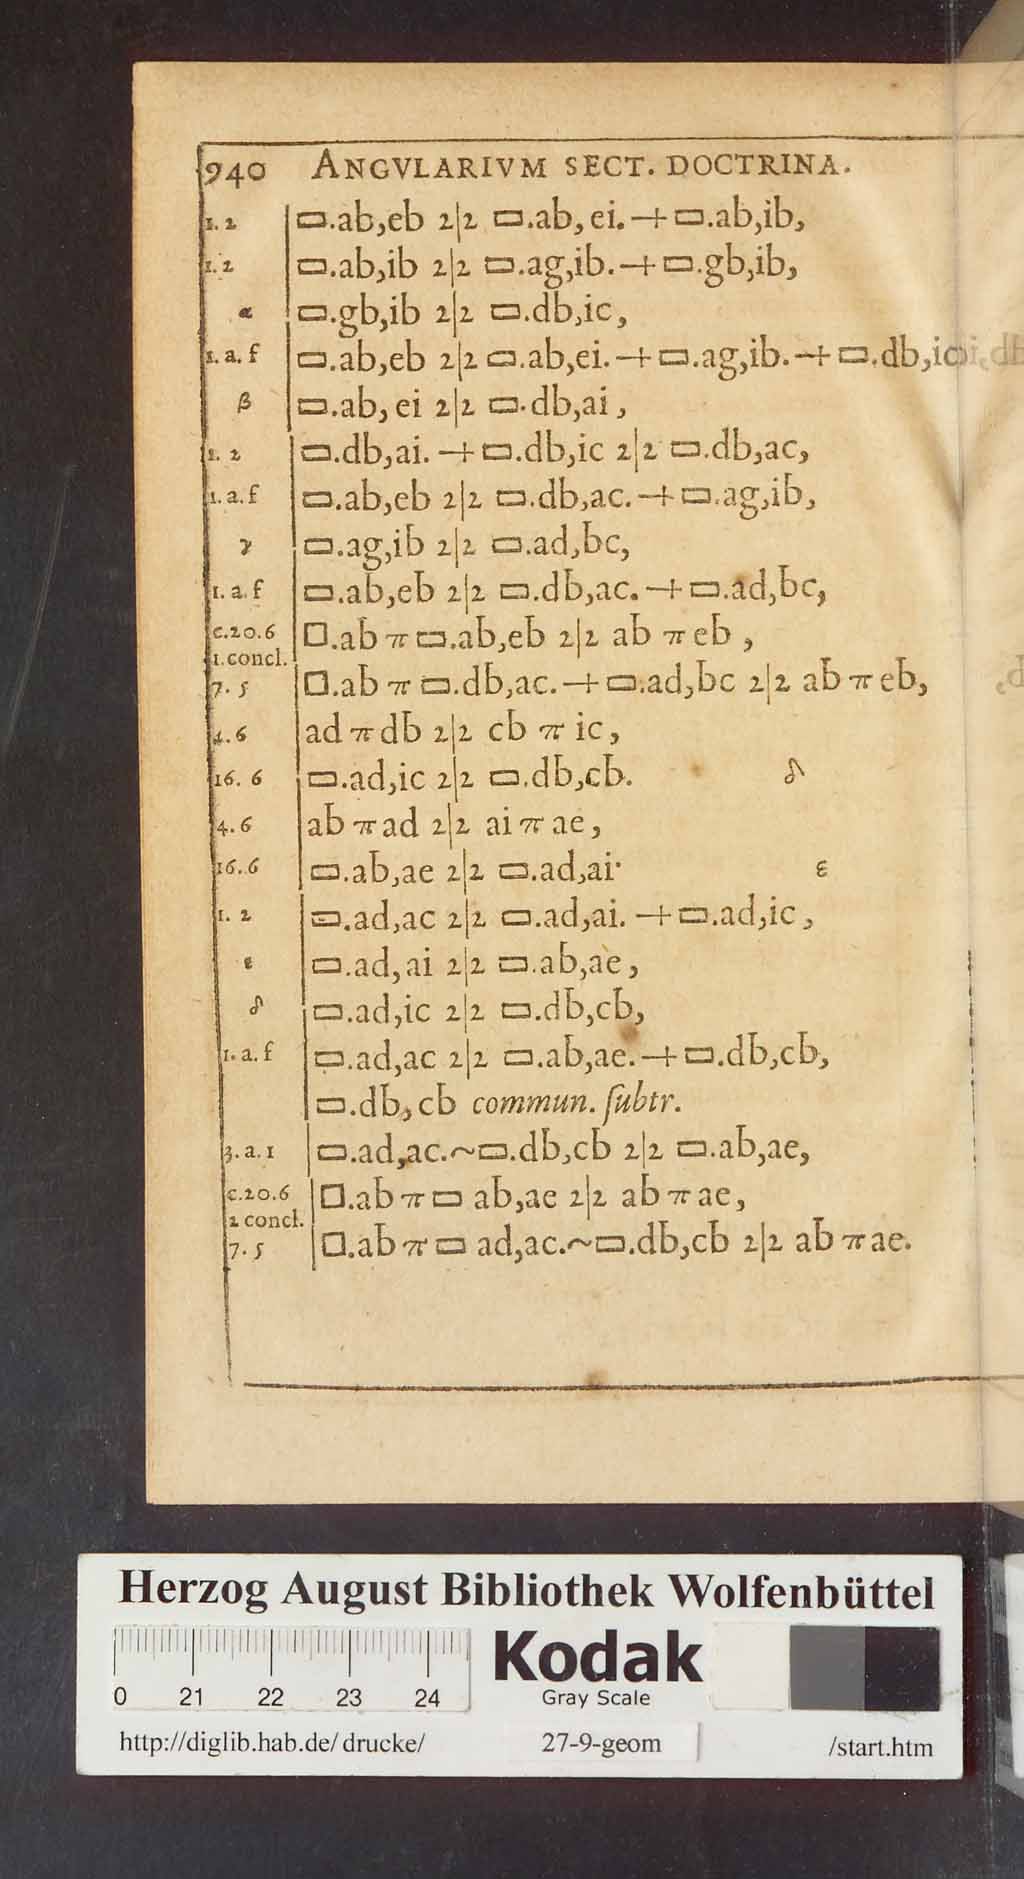 940 ANGVLARIVM SECT. DOCTRINA.
1. 2 ▭.ab,eb 2|2 ▭.ab,ei.–+▭.ab,ib,
1. 2 ▭.ab,ib 2|2 ▭.ag,ib.–+▭.gb,ib,
α ▭.gb,ib 2|2 ▭.db,ic,
1. a. f ▭.ab,eb 2|2 ▭.ab,ei.–+▭.ag,ib.–+▭.db,ic
β ▭.ab,ei 2|2 ▭.db,ai,
1. 2 ▭.db,ai.–+▭.db,ic 2|2 ▭.db,ac,
1. a. f ▭.ab,eb 2|2 ▭.db,ac.–+▭.ag,ib,
γ ▭.ag,ib 2|2 ▭.ad,bc,
1. a. f ▭.ab,eb 2|2 ▭.db,ac.–+▭.ad,bc,
c.20.6 □.ab π ▭.ab,eb 2|2 ab π eb,
1.concl.
7. 5 □.ab π ▭.db,ac.–+▭.ad,bc 2|2 ab π eb,
4.6 ad π db 2|2 cb π ic,
16. 6 ▭.ad,ic 2|2 ▭.db,cb. δ
4.6 ab π ad 2|2 ai π ae,
16.6 ▭.ab,ae 2|2 ▭.ad,ai· ε
1. 2 ▭.ad,ac 2|2 ▭.ad,ai.–+▭.ad,ic,
ε ▭.ad,ai 2|2 ▭.ab,ae,
δ ▭.ad,ic 2|2 ▭.db,cb,
1. a. f ▭.ad,ac 2|2 ▭.ab,ae.–+▭.db,cb,
▭.db,cb commun. ſubtr.
3. a. 1 ▭.ad,ac.~▭.db,cb 2|2 ▭.ab,ae,
c.20.6 □.ab π ▭ ab,ae 2|2 ab π ae,
2 concl.
7. 5 □.ab π ▭ ad,ac.~▭.db,cb 2|2 ab π ae.
Herzog August Bibliothek Wolfenbüttel
0 21 22 23 24
Kodak
Gray Scale
http://diglib.hab.de/drucke/ 27-9-geom /start.htm